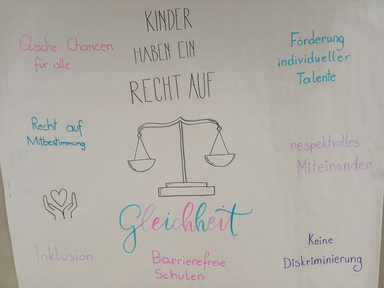 KINDER
HABEN EIN
RECHT AUF
Gleichheit
Gleiche Chancen
für alle
Recht auf
Mitbestimmung
Inklusion
Barrierefreie
Schulen
Förderung
individueller
Talente
respektvolles
Miteinander
Keine
Diskriminierung